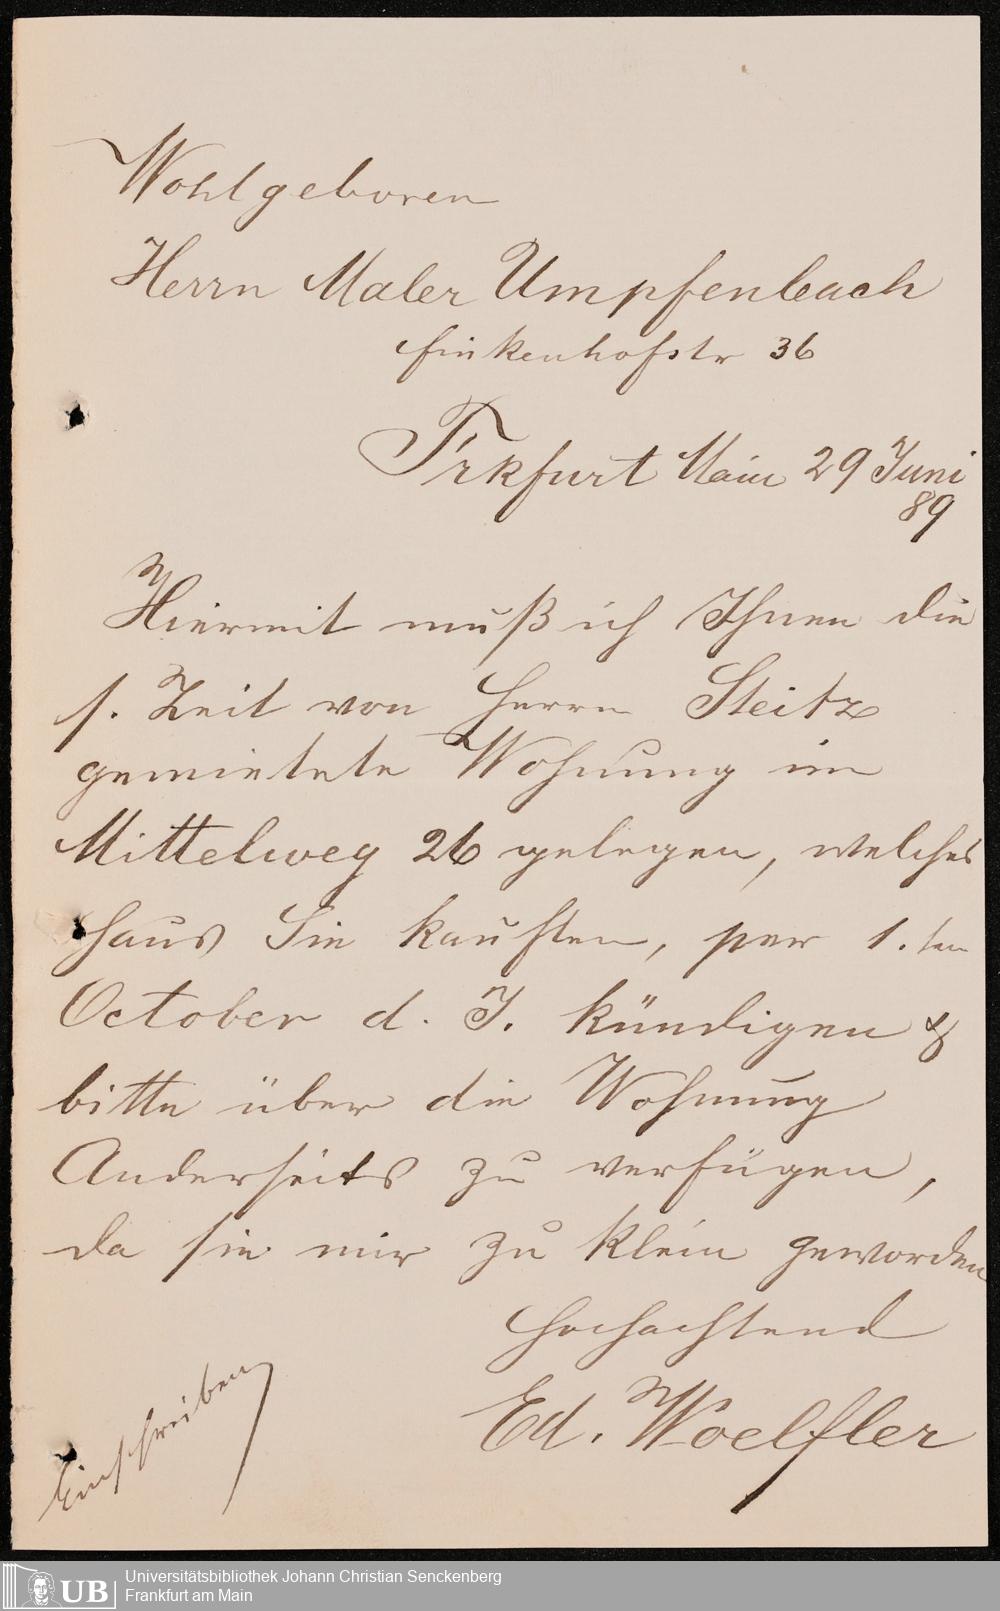 Wohlgeboren
Herrn Maler Umpfenbach
Finkenhofstr 36
Frkfurt Main 29 Juni
89
Hiermit muß ich Ihnen die
s. Zeit von Herrn Steitz
gemietete Wohnung im
Mittelweg 26 gelegen, welches
Haus Sie kauften, per 1. ten
October d. J. kündigen &
bitte über die Wohnung
Anderseits zu verfügen,
da sie mir zu klein geworden
Hochachtend
Ed. Woelfler
Einschreiben
UB
Universitätsbibliothek Johann Christian Senckenberg
Frankfurt am Main